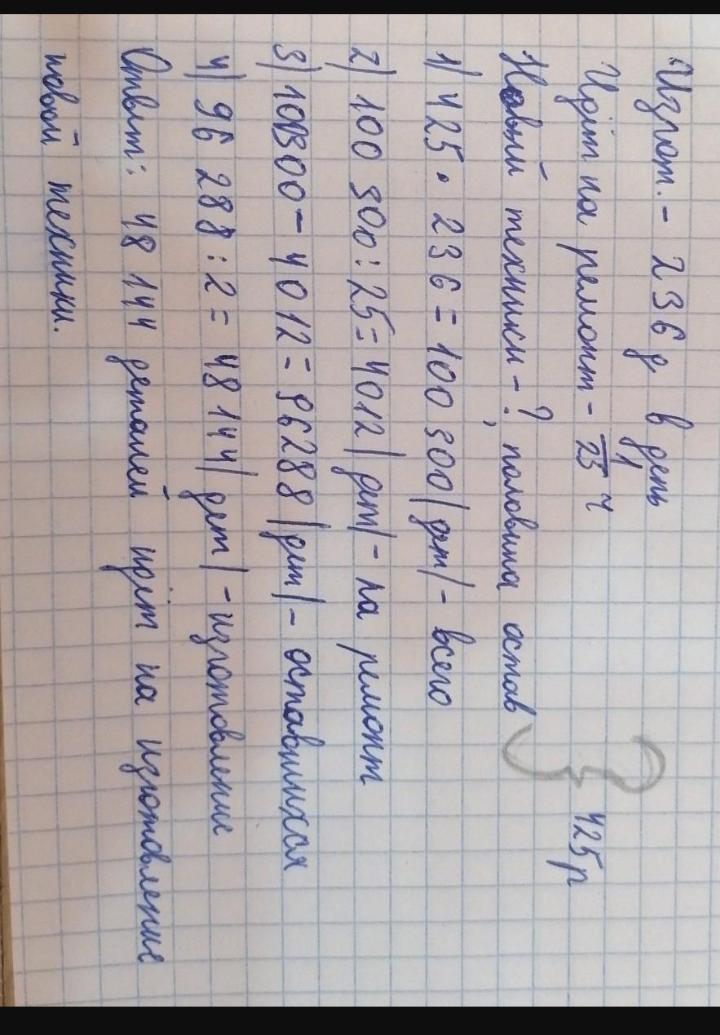 Изгот. - 236 д в день
Идёт на ремонт - 1/25 ч
Новый техники - ?, половина остав
} 425 р
1) 425 · 236 = 100 300 (дет) - всего
2) 100 300 : 25 = 4012 (дет) - на ремонт
3) 100300 - 4012 = 96288 (дет) - оставшихся
4) 96 288 : 2 = 48 144 (дет) - изготовление
Ответ: 48 144 деталей идёт на изготовление
новой техники.